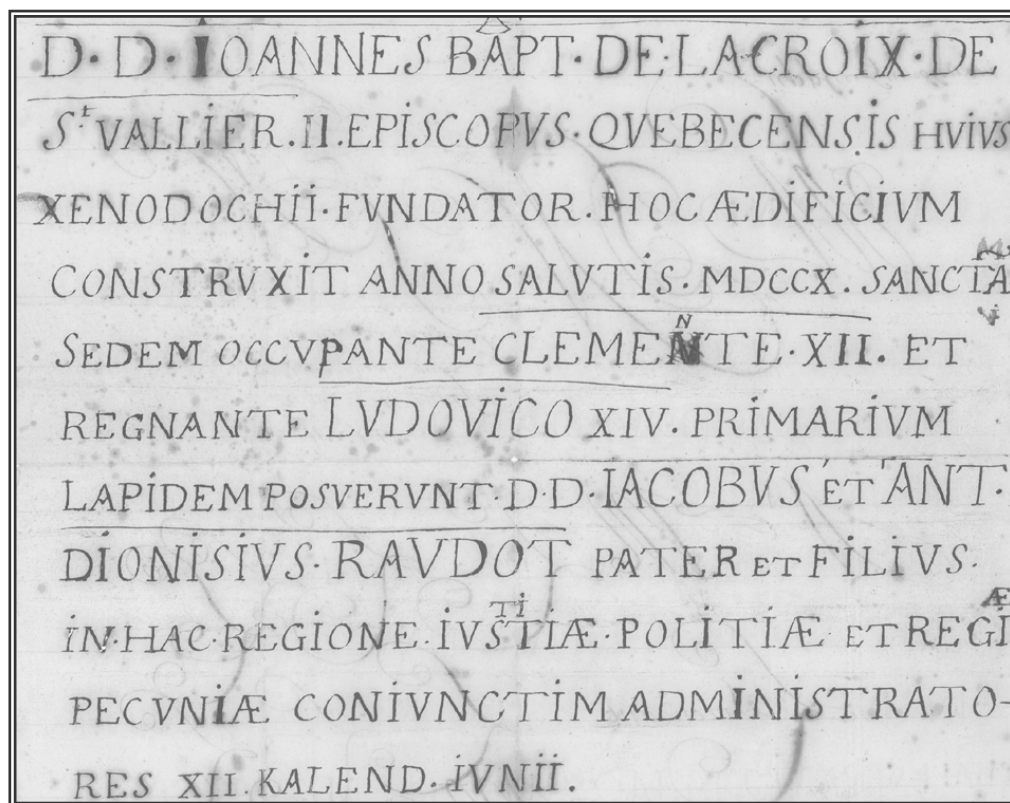 D·D·IOANNES BAPT·DE·LACROIX·DE
Sᵗ VALLIER.II.EPISCOPVS·QVEBECENSIS HVIVS
XENODOCHII·FVNDATOR·HOC ÆDIFICIVM
CONSTRVXIT ANNO SALVTIS·MDCCX·SANCTA
SEDEM OCCVPANTE CLEMENTE·XII. ET
REGNANTE LVDOVICO XIV. PRIMARIVM
LAPIDEM POSVERVNT·D·D·IACOBVS ET ANT·
DIONISIVS·RAVDOT PATER ET FILIVS·
IN·HAC·REGIONE·IVSTITIÆ·POLITIÆ ET REGIÆ
PECVNIÆ CONIVNCTIM ADMINISTRATO-
RES XII.KALEND·IVNII.